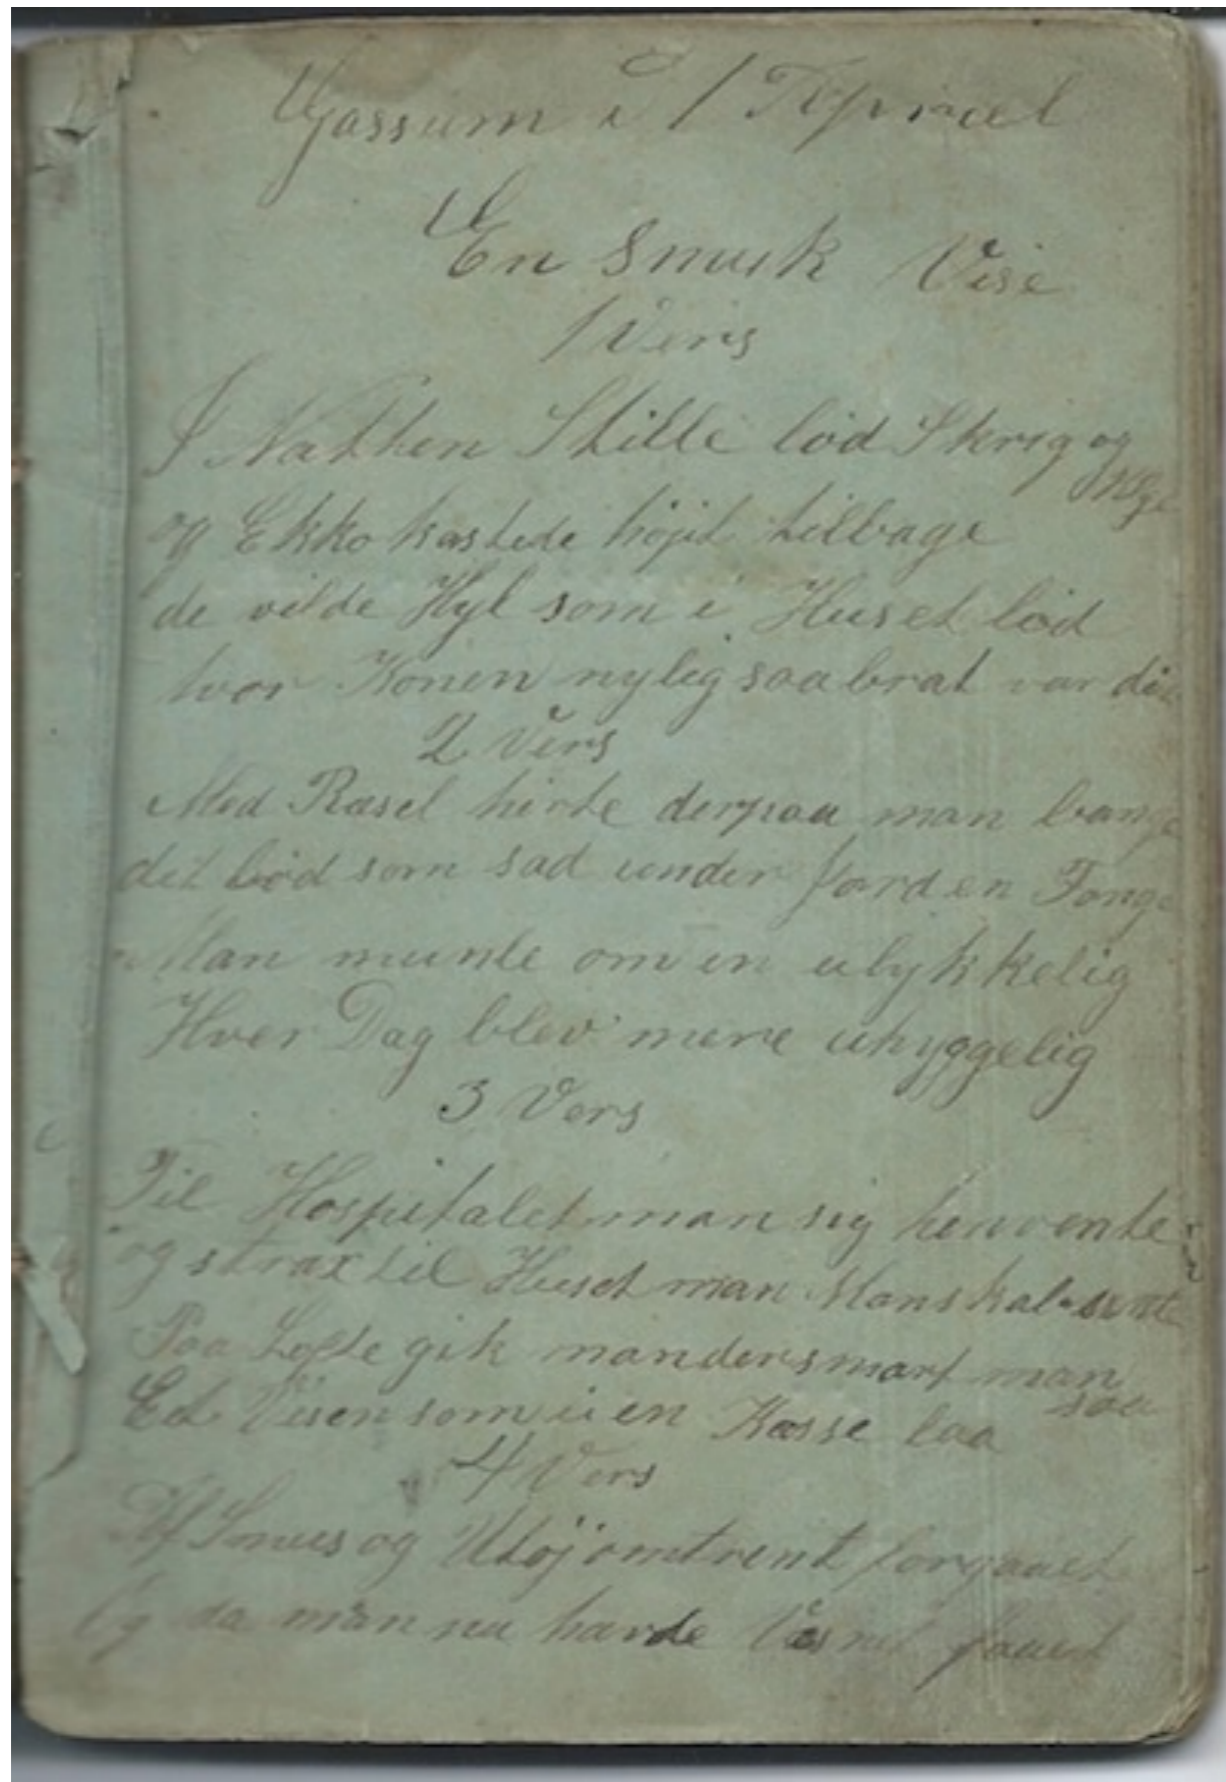 Gassum i 1 April
En Smuk Vise
1 Vers
I Natten Stille lød Skrig og
Klge
og Ekko kastede højt tilbage
de vilde Hyl som i Huset lød
hvor Konen nylig saa brat var død
2 Vers
Med Rasel hørte derpaa man bange
det lød som sad under Jorden Fange
Man munle om en ulykkelig
Hver Dag blev mere uhyggelig
3 Vers
Til Hospitalet man sig henvente
og strax til Huset man Manskab sente
Paa Lofte gik man der snart man
saa
Et Vesen som i en Kasse laa
4 Vers
Af Snus og Utøj omtrent forgaaet
Og da man nu havde Vesnet faaet